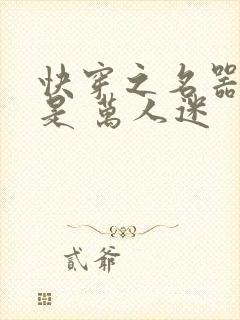 快穿之名器
是萬人迷
貳爺